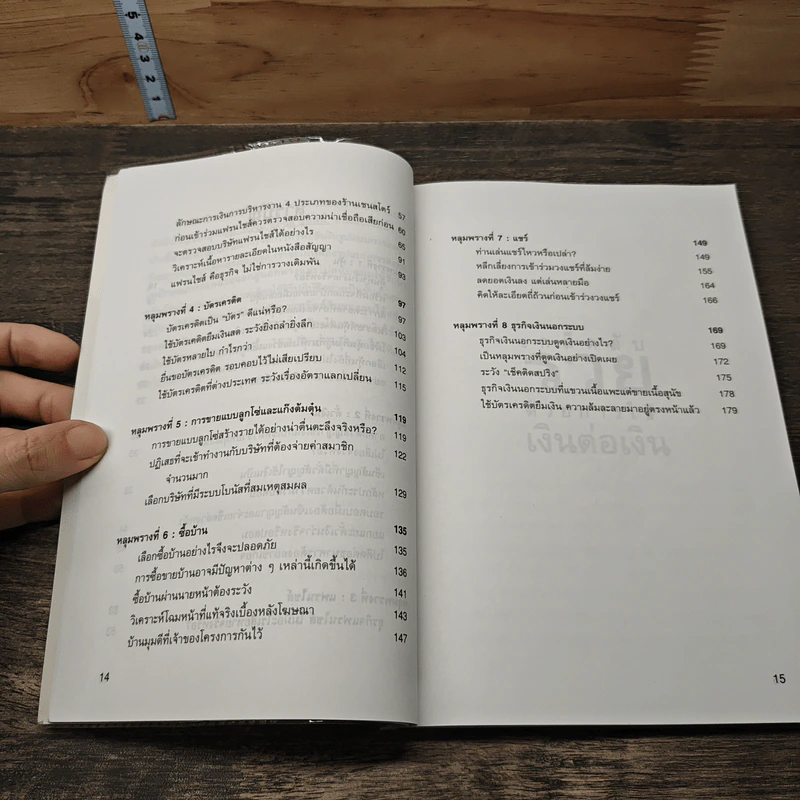 ลักษณะการเงินการบริหารงาน 4 ประเภทของร้านเชนสโตร์ 57
ก่อนเข้าร่วมแฟรนไชส์ควรตรวจสอบความน่าเชื่อถือเสียก่อน 60
จะตรวจสอบบริษัทแฟรนไชส์ได้อย่างไร 65
วิเคราะห์เนื้อหารายละเอียดในหนังสือสัญญา 91
แฟรนไชส์ คือธุรกิจ ไม่ใช่การวางเดิมพัน 93
หลุมพรางที่ 4 : บัตรเครดิต 97
บัตรเครดิตเป็น "บัตร" ดีแน่หรือ? 97
ใช้บัตรเครดิตยืมเงินสด ระวังยิ่งถลำยิ่งลึก 103
ใช้บัตรหลายใบ กำไรกว่า 104
ยื่นขอบัตรเครดิต รอบคอบไว้ไม่เสียเปรียบ 112
ใช้บัตรเครดิตที่ต่างประเทศ ระวังเรื่องอัตราแลกเปลี่ยน 115
หลุมพรางที่ 5 : การขายแบบลูกโซ่และแก๊งต้มตุ๋น 119
การขายแบบลูกโซ่สร้างรายได้อย่างน่าตื่นตะลึงจริงหรือ? 119
ปฏิเสธที่จะเข้าทำงานกับบริษัทที่ต้องจ่ายค่าสมาชิก 122
จำนวนมาก
เลือกบริษัทที่มีระบบโบนัสที่สมเหตุสมผล 129
หลุมพรางที่ 6 : ซื้อบ้าน 135
เลือกซื้อบ้านอย่างไรจึงจะปลอดภัย 135
การซื้อขายบ้านอาจมีปัญหาต่าง ๆ เหล่านี้เกิดขึ้นได้ 136
ซื้อบ้านผ่านนายหน้าต้องระวัง 141
วิเคราะห์โฉมหน้าที่แท้จริงเบื้องหลังโฆษณา 143
บ้านมุมดีที่เจ้าของโครงการกันไว้ 147
14
หลุมพรางที่ 7 : แชร์ 149
ท่านเล่นแชร์ไหวหรือเปล่า? 149
หลีกเลี่ยงการเข้าร่วมวงแชร์ที่ล้มง่าย 155
ลดยอดเงินลง แต่เล่นหลายมือ 164
คิดให้ละเอียดถี่ถ้วนก่อนเข้าร่วงวงแชร์ 166
หลุมพรางที่ 8 ธุรกิจเงินนอกระบบ 169
ธุรกิจเงินนอกระบบดูดเงินอย่างไร? 169
เป็นหลุมพรางที่ดูดเงินอย่างเปิดเผย 172
ระวัง "เช็คติดสปริง" 175
ธุรกิจเงินนอกระบบที่แขวนเนื้อแพะแต่ขายเนื้อสุนัข 178
ใช้บัตรเครดิตยืมเงิน ความล้มละลายมาอยู่ตรงหน้าแล้ว 179
15